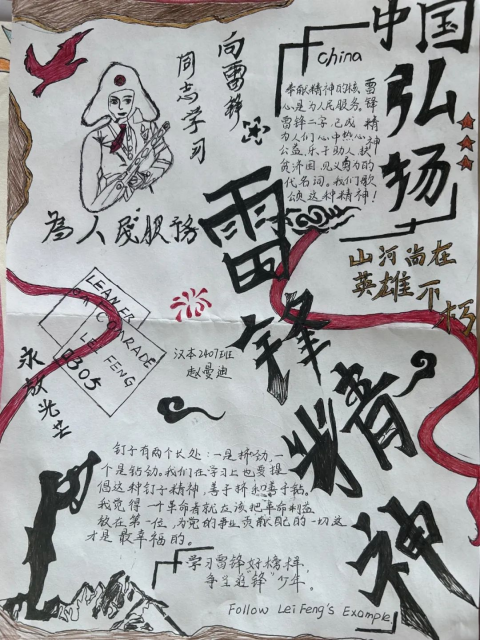 中国
弘扬
雷锋精神
China
奉献精神的核
心是为人民服务,
雷锋二字,已成
为人们心中热心
公益,乐于助人,扶
贫济困,见义勇为的
代名词。我们歌
颂这种精神!
雷锋精神
向雷锋
同志学习
為人民服務
山河尚在
英雄不朽
LEAN FR
COMRADE
LEI FENG
0305
永放光芒
汉本2407班
赵曼迪
钉子有两个长处:一是挤动,一
个是钻劲。我们在学习上也要提
倡这种钉子精神,善于挤和善于钻。
我觉得一个革命者就应该把革命利益
放在第一位,为党的事业贡献自己的一切,这
才是最幸福的。
学习雷锋好榜样,
争当追"锋"少年。
Follow Lei Feng's Example